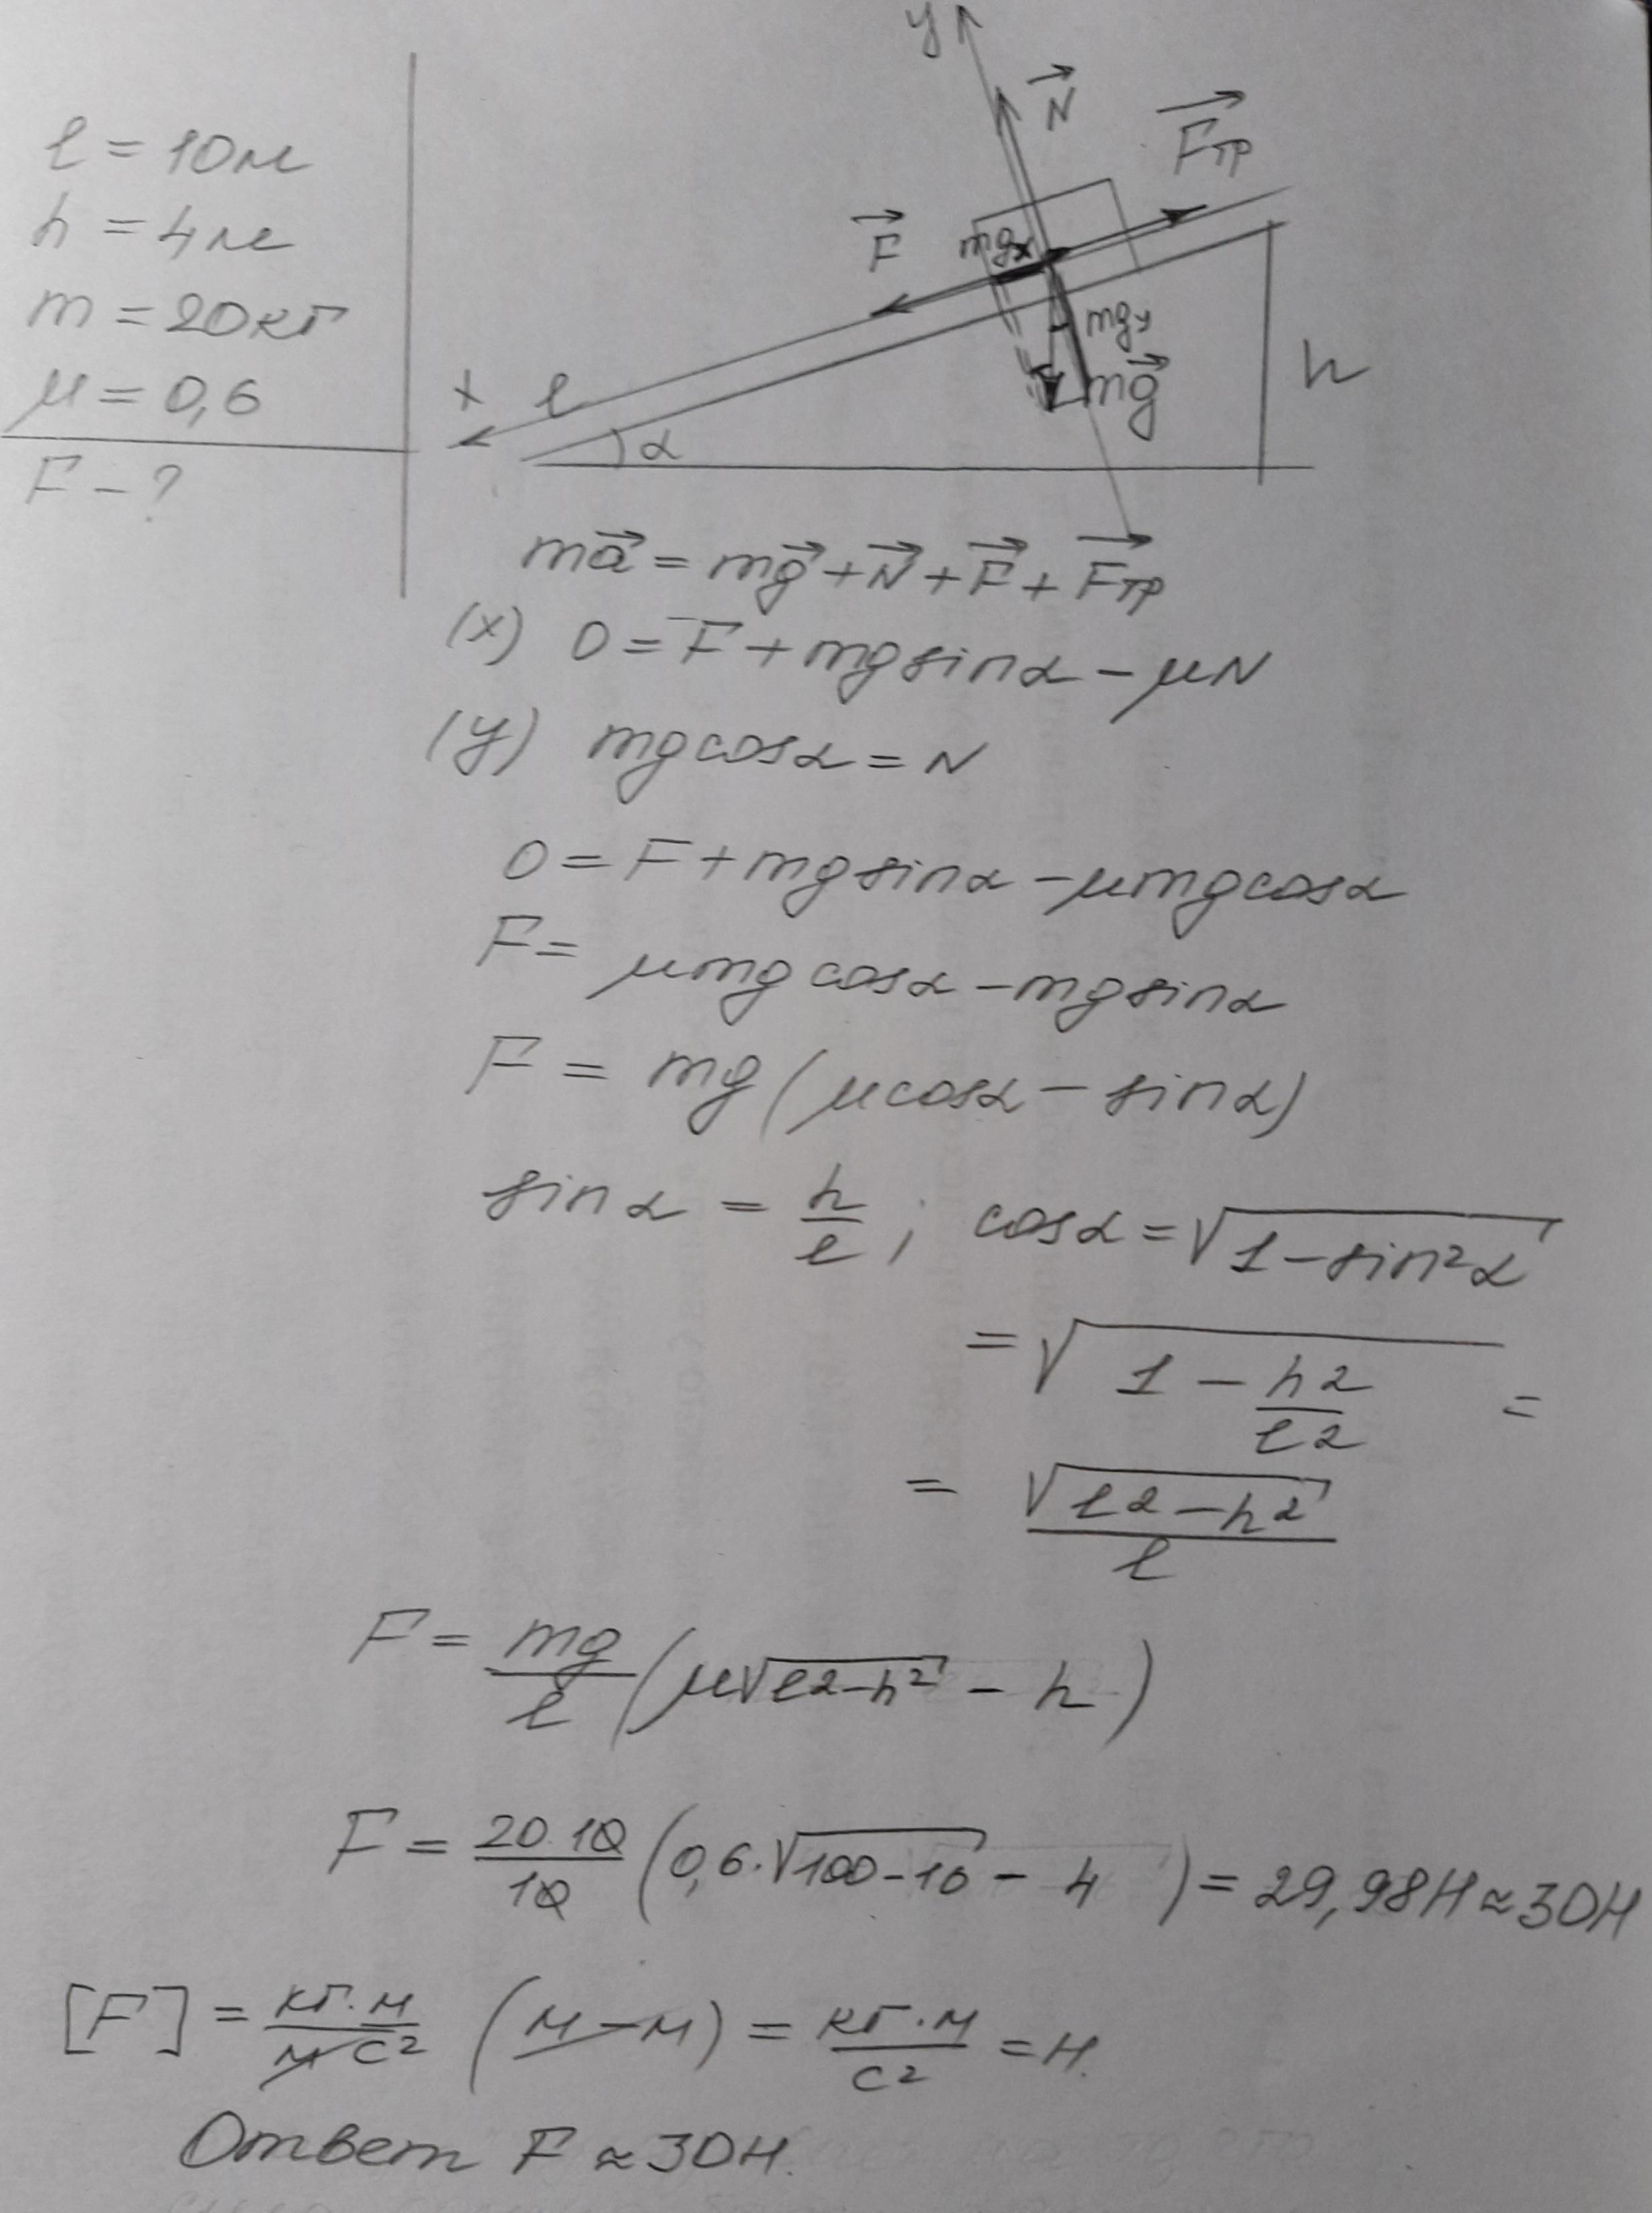 l = 10м
h = 4м
m = 20кг
μ = 0,6
F - ?
y
N
Fтр
F
mgx
mgy
mg
h
x
l
α
ma = mg + N + F + Fтр
(x) 0 = F + mgsinα - μN
(y) mgcosα = N
0 = F + mgsinα - μmgcosα
F = μmgcosα - mgsinα
F = mg(μcosα - sinα)
sinα = h/l ; cosα = √(1 - sin²α)
= √(1 - h²/l²) =
= √(l² - h²)/l
F = mg/l (μ√(l² - h²) - h)
F = 20·10/10 (0,6·√(100-16) - 4) = 29,98Н ≈ 30Н
[F] = кг·м/м с² (м - м) = кг·м/с² = Н.
Ответ F ≈ 30Н.